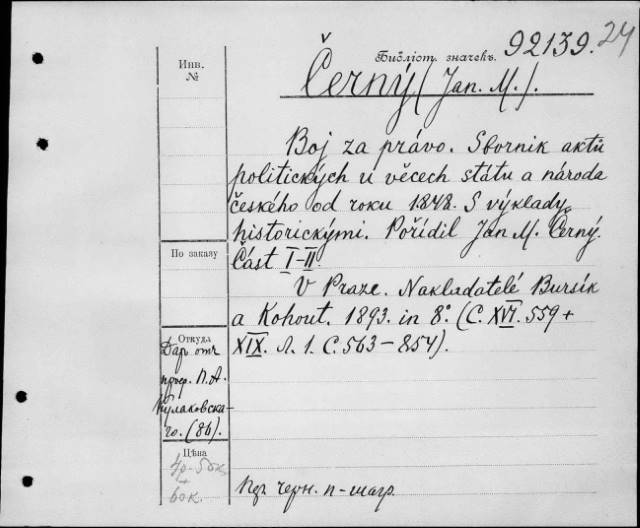 Библіот. значекъ. 92139. 24
Инв.
№
Černý (Jan. M.).
Boj za právo. Sborník aktů
politických u věcech státu a národa
českého od roku 1848. S výklady
historickými. Pořídil Jan M. Černý.
Část I-II.
По заказу
V Praze. Nakladatelé Bursík
a Kohout. 1893. in 8.° (С. XVI. 559 +
XIX. Л. 1. С. 563 - 854).
Откуда
Даръ отъ
проф. П. А.
Кулаковска-
го. (86).
Цѣна
60 к.
черн. п-шагр.